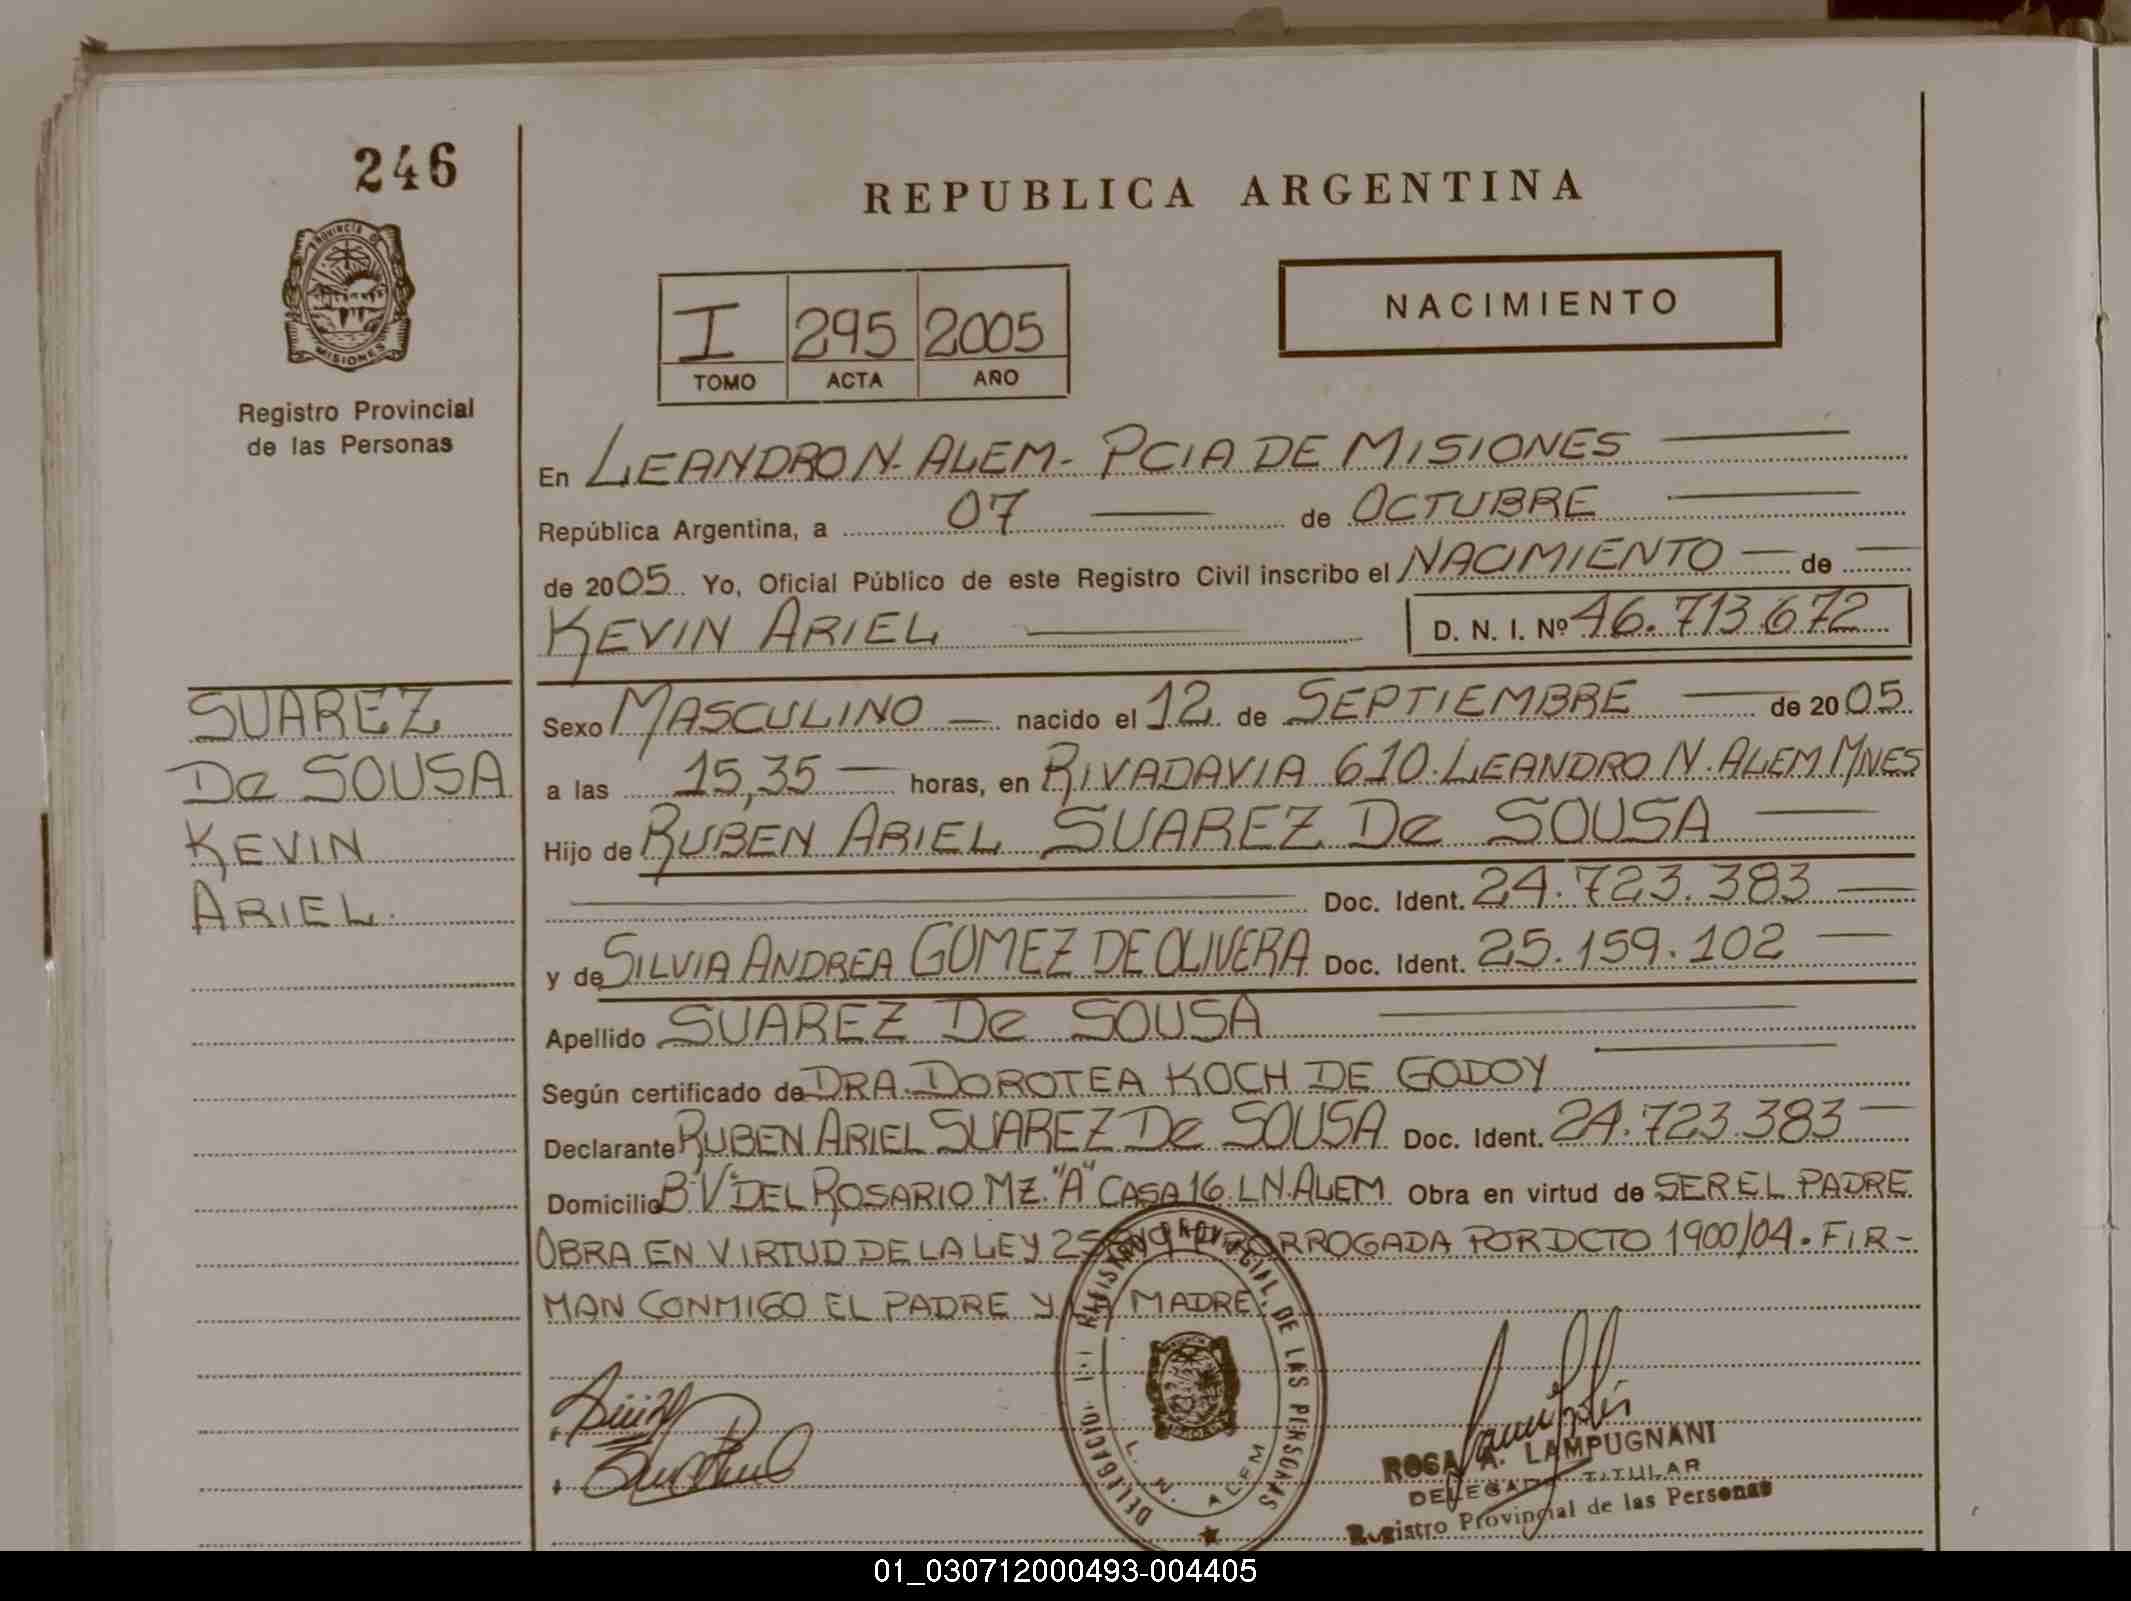 246
REPUBLICA ARGENTINA
PROVINCIA DE MISIONES
Registro Provincial
de las Personas
I 295 2005
TOMO ACTA AÑO
NACIMIENTO
En LEANDRO N. ALEM - PCIA DE MISIONES
República Argentina, a 07 de OCTUBRE
de 2005 Yo, Oficial Público de este Registro Civil inscribo el NACIMIENTO de
KEVIN ARIEL D. N. I. Nº 46.713.672
SUAREZ
De SOUSA
KEVIN
ARIEL.
Sexo MASCULINO nacido el 12 de SEPTIEMBRE de 2005
a las 15,35 horas, en RIVADAVIA 610. LEANDRO N. ALEM MNES
Hijo de RUBEN ARIEL SUAREZ De SOUSA
Doc. Ident. 24.723.383
y de SILVIA ANDREA GOMEZ DE OLIVERA Doc. Ident. 25.159.102
Apellido SUAREZ De SOUSA
Según certificado de DRA. DOROTEA KOCH DE GODOY
Declarante RUBEN ARIEL SUAREZ De SOUSA Doc. Ident. 24.723.383
Domicilio Bº Vº DEL ROSARIO MZ. "A" CASA 16. L.N. ALEM Obra en virtud de SER EL PADRE
OBRA EN VIRTUD DE LA LEY PRORROGADA POR DCTO 1900/04. FIR-
MAN CONMIGO EL PADRE Y LA MADRE.
REGISTRO PROVINCIAL DE LAS PERSONAS
DELEGACION
L. N. ALEM
ROSA A. LAMPUGNANI
DELEGADA TITULAR
Registro Provincial de las Personas
01_030712000493-004405